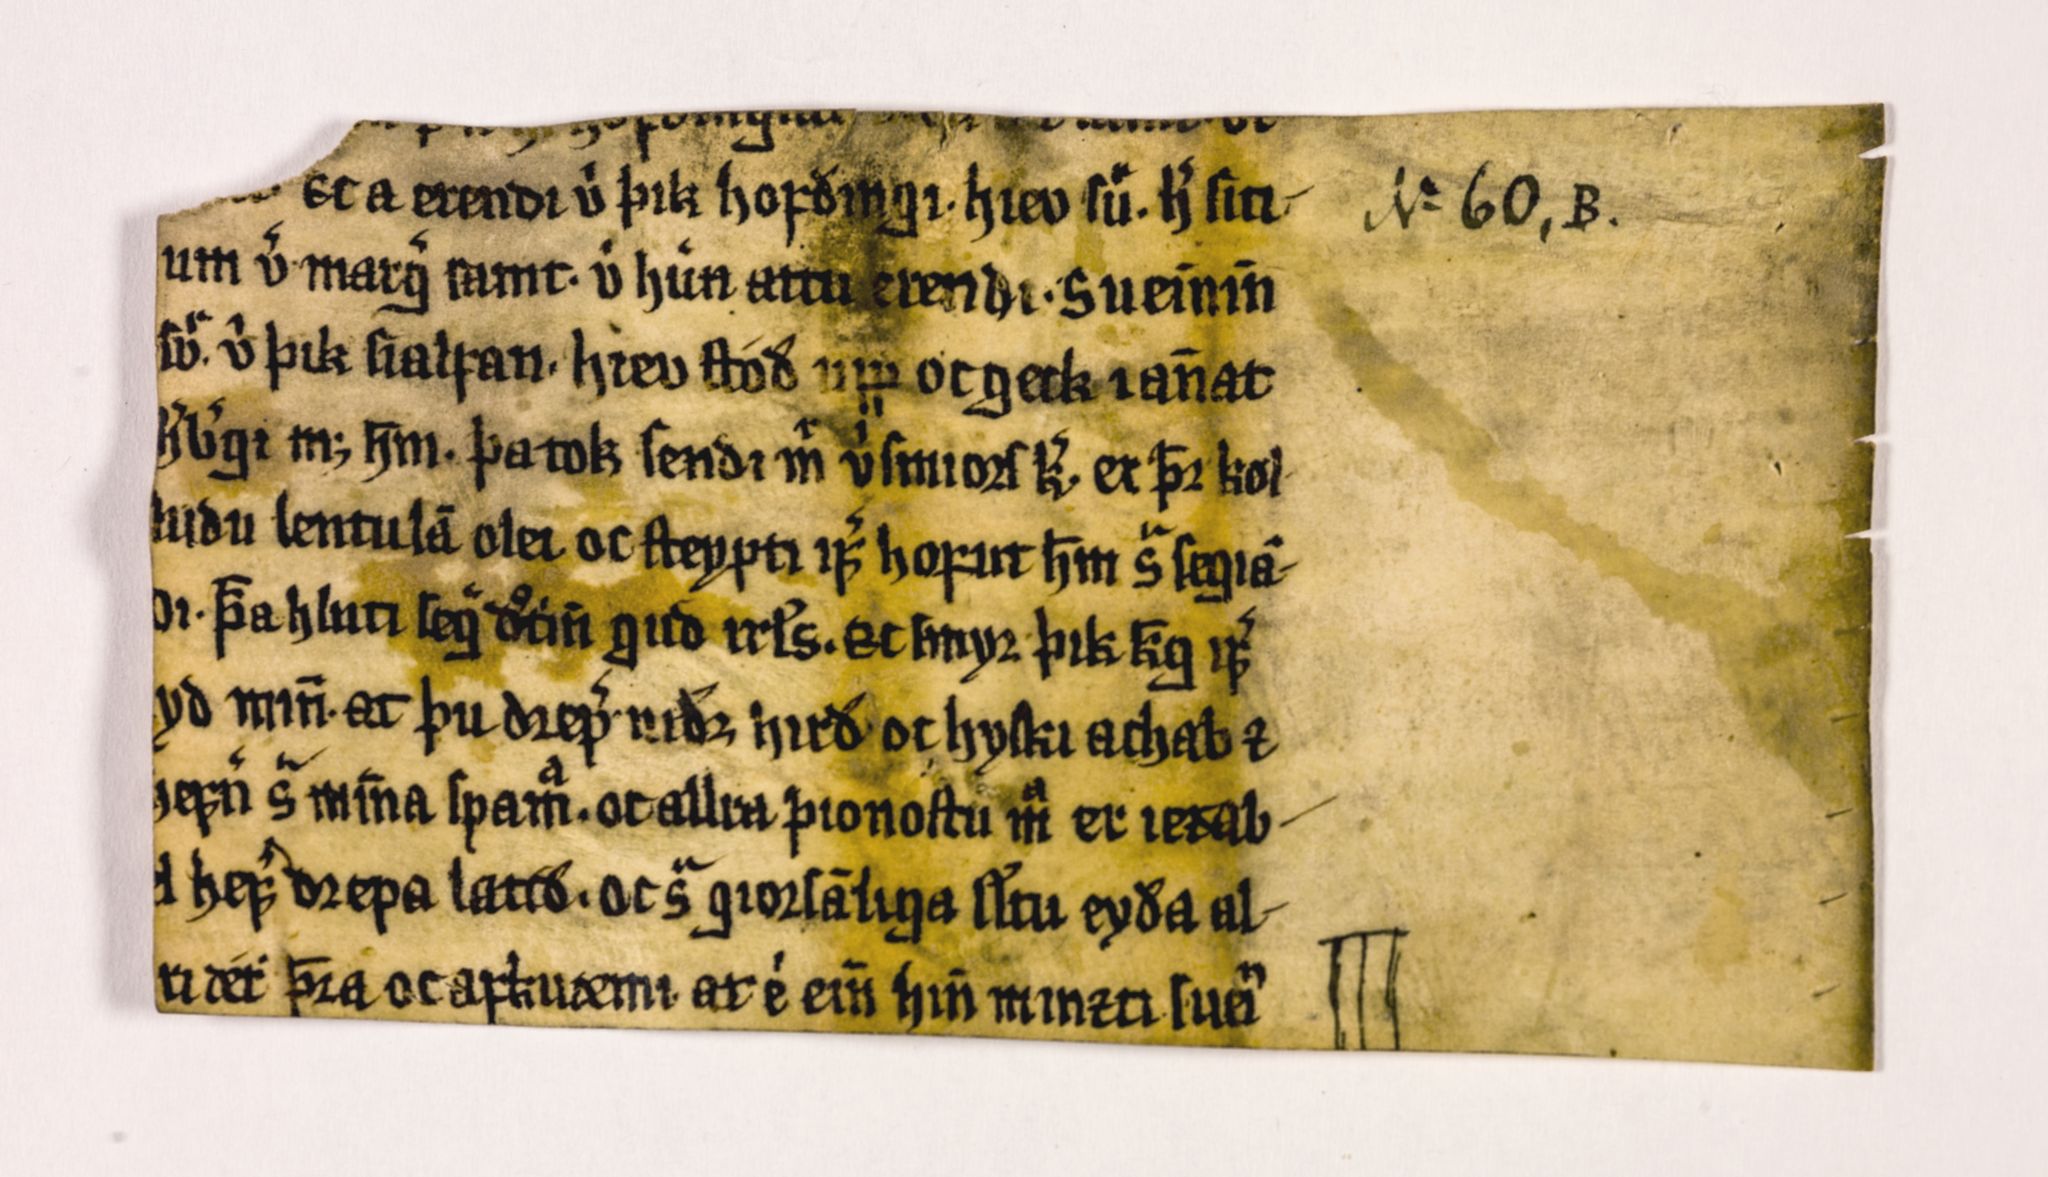 Ec a erendi v͛ þik hofðingi. hiev su͛. h͛ siti-
N° 60, B.
um v͛ marg͛ samt. v͛ hu͛n attu erendi. Suein̄in̄
sv͛. v͛ þik sialfan. hiev stoð upp oc geck i an̄at
h͛b͛gi m; h̄m. þa tok sendi m̄ v͛ smiors k͛. er þ̄r kol
ludu lentulā olei oc steypti ip̄ hofut h̄m s͛ segiā-
di. þ̄a hluti seg͛ dͦtin̄ gud irl͛s. Ec smyr þik k̄g ip̄
yd min̄. at þu drep͛ nidr hird oc hyski achab ⁊
hefn͛ s͛ min̄a spam̄ᵃ. oc allra þionostu m̄ᵃ er iezab-
hef͛ drepa latið. oc s͛ giorsāliga sl͛tu eyða al-
ri ǽtt þ̄ra oc afkuæmi at é ein̄ hin̄ minzti suei͛n